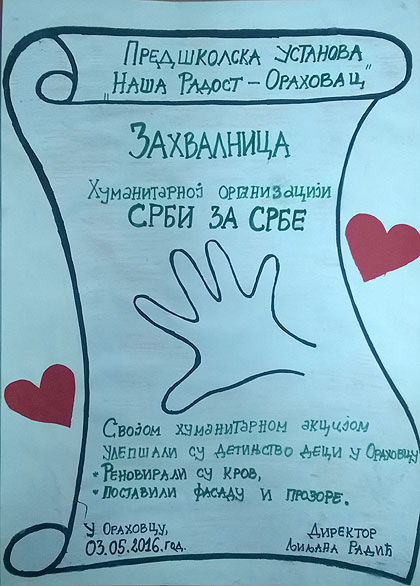 Предшколска установа
"Наша Радост - Ораховац"
Захвалница
Хуманитарној организацији
СРБИ ЗА СРБЕ
Својом хуманитарном акцијом
улепшали су детињство деци у Ораховцу
• Реновирали су кров,
• поставили фасаду и прозоре.
У Ораховцу,
03.05.2016.год.
Директор
Љиљана Радић